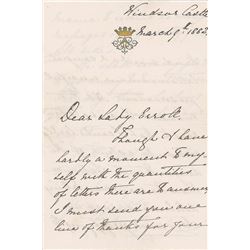 Windsor Castle
March 9th 1883.
Dear Lady Erroll,
Though I have
hardly a moment to my-
self with the quantities
of letters there are to answer
I must send you one
line of thanks for your